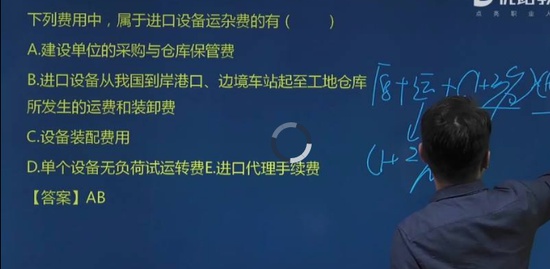 下列费用中，属于进口设备运杂费的有（ ）
A.建设单位的采购与仓库保管费
B.进口设备从我国到岸港口、边境车站起至工地仓库
所发生的运费和装卸费
C.设备装配费用
D.单个设备无负荷试运转费E.进口代理手续费
【答案】AB